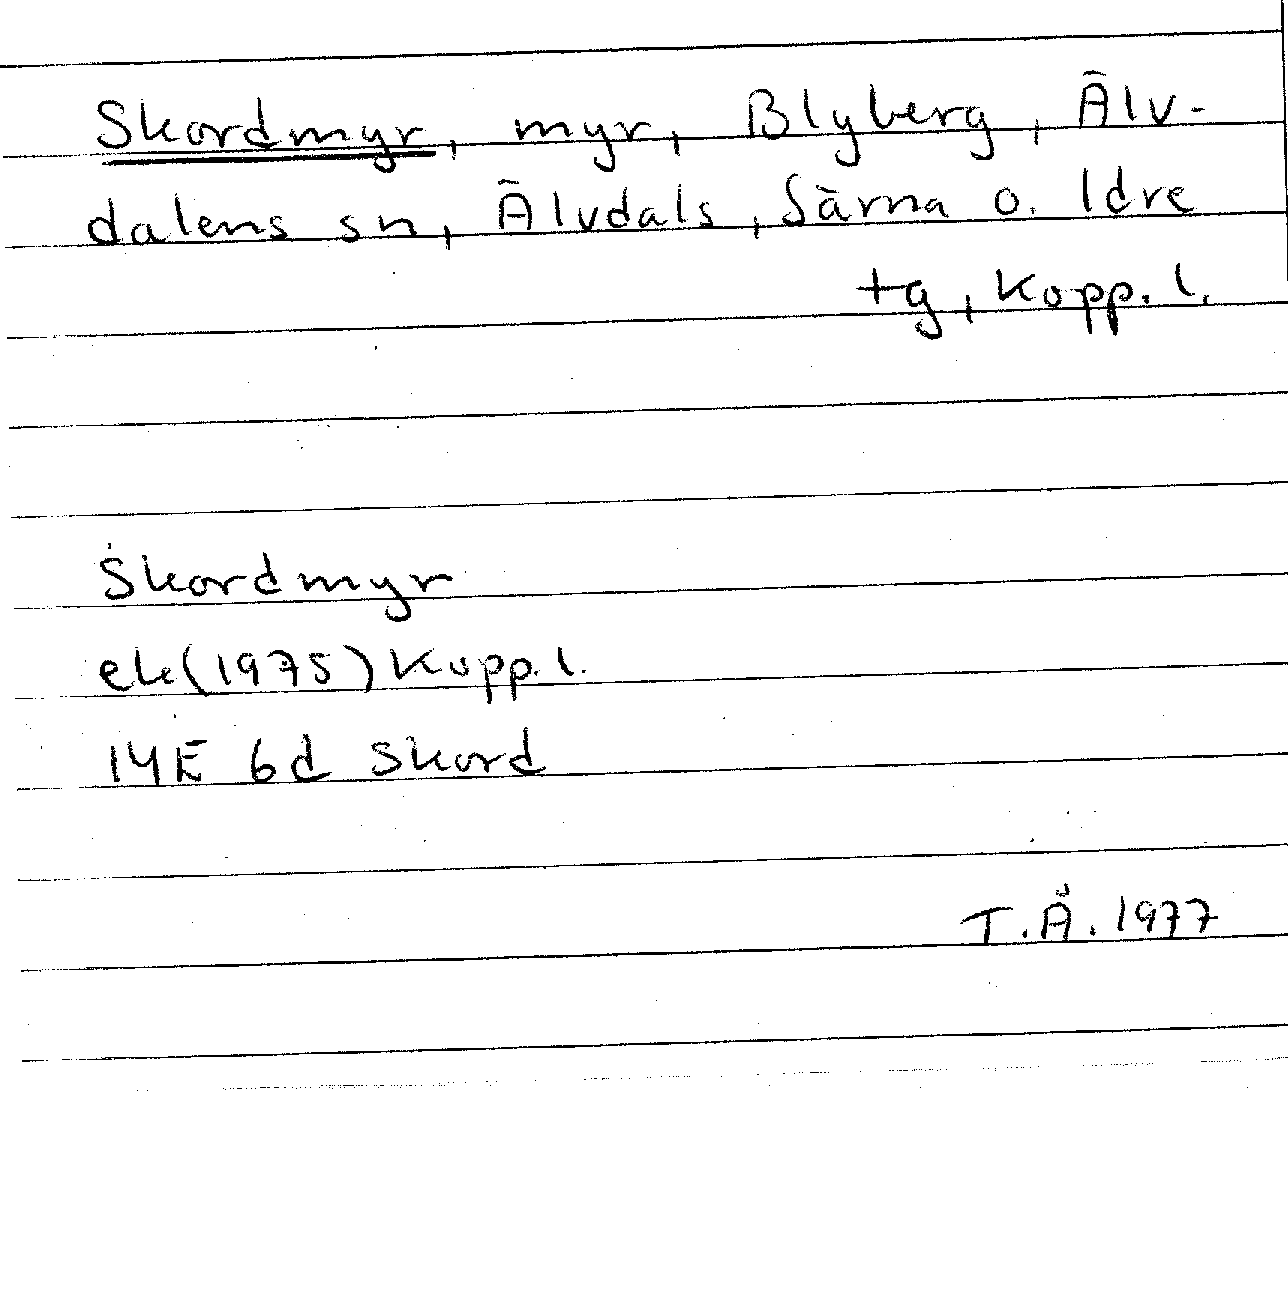 Skordmyr, myr, Blyberg, Älv-
dalens sn, Älvdals, Särna o. Idre
tg, Kopp. l.
Skordmyr
ek(1975) Kopp. l.
14E 6d Skord
T.Å. 1977